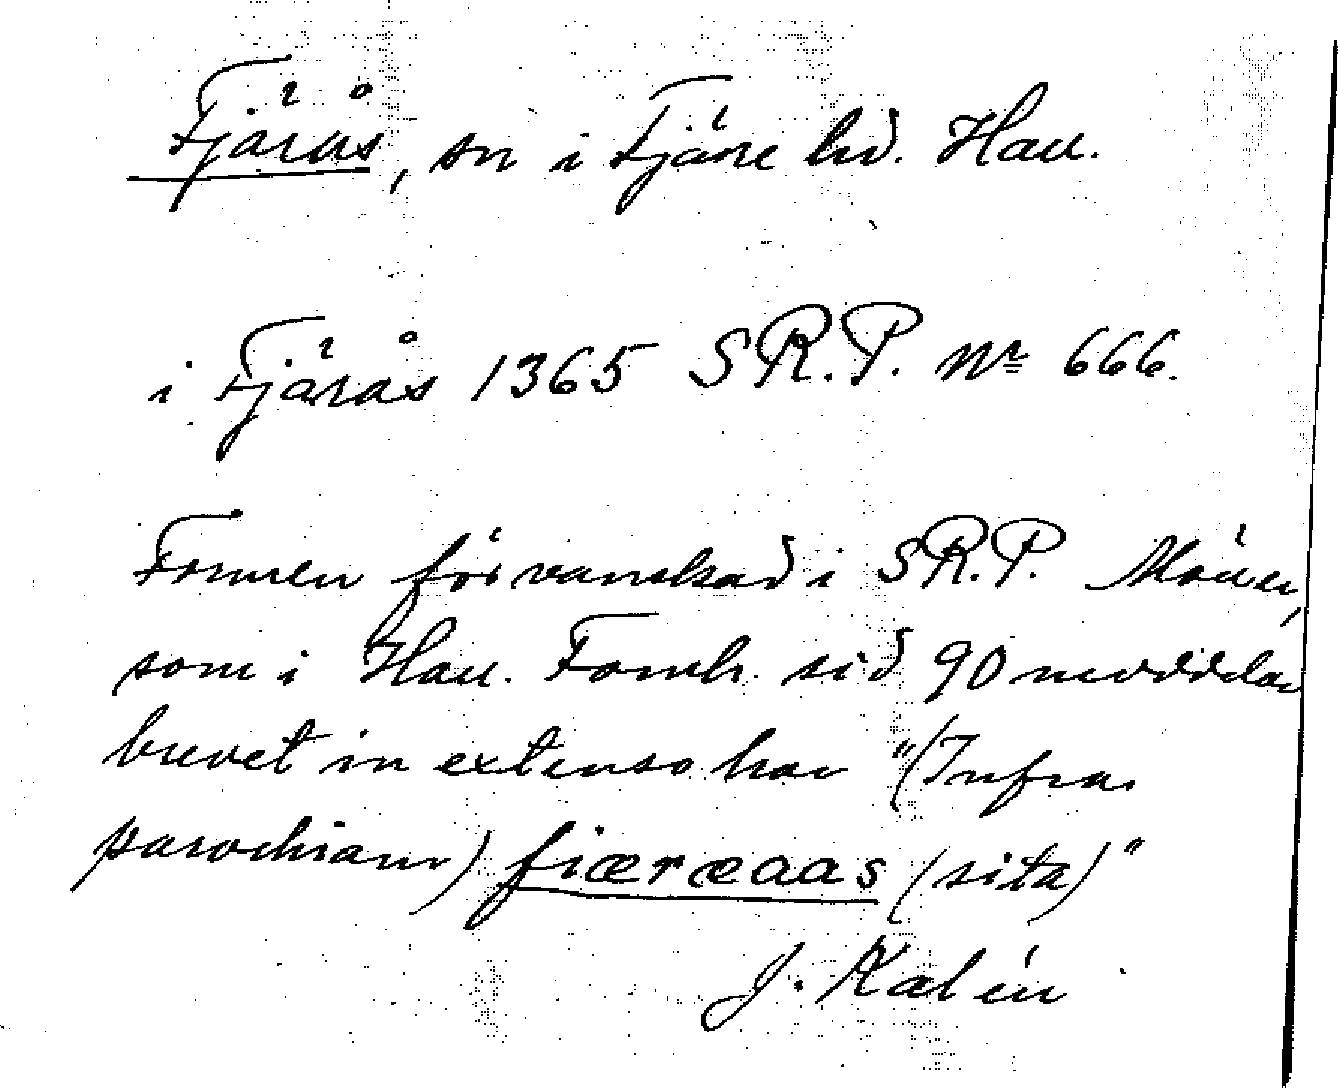 Fjärås, sn i Fjäre hd. Hall.
i Fjärås 1365 SR.P. Nr 666.
Formen förvanskad i SR.P.
som i Hall. Fornh. sid 90 meddelar
brevet in extenso har "(Infra
parochiam) fiæræaas (sita)"
J. Kalén